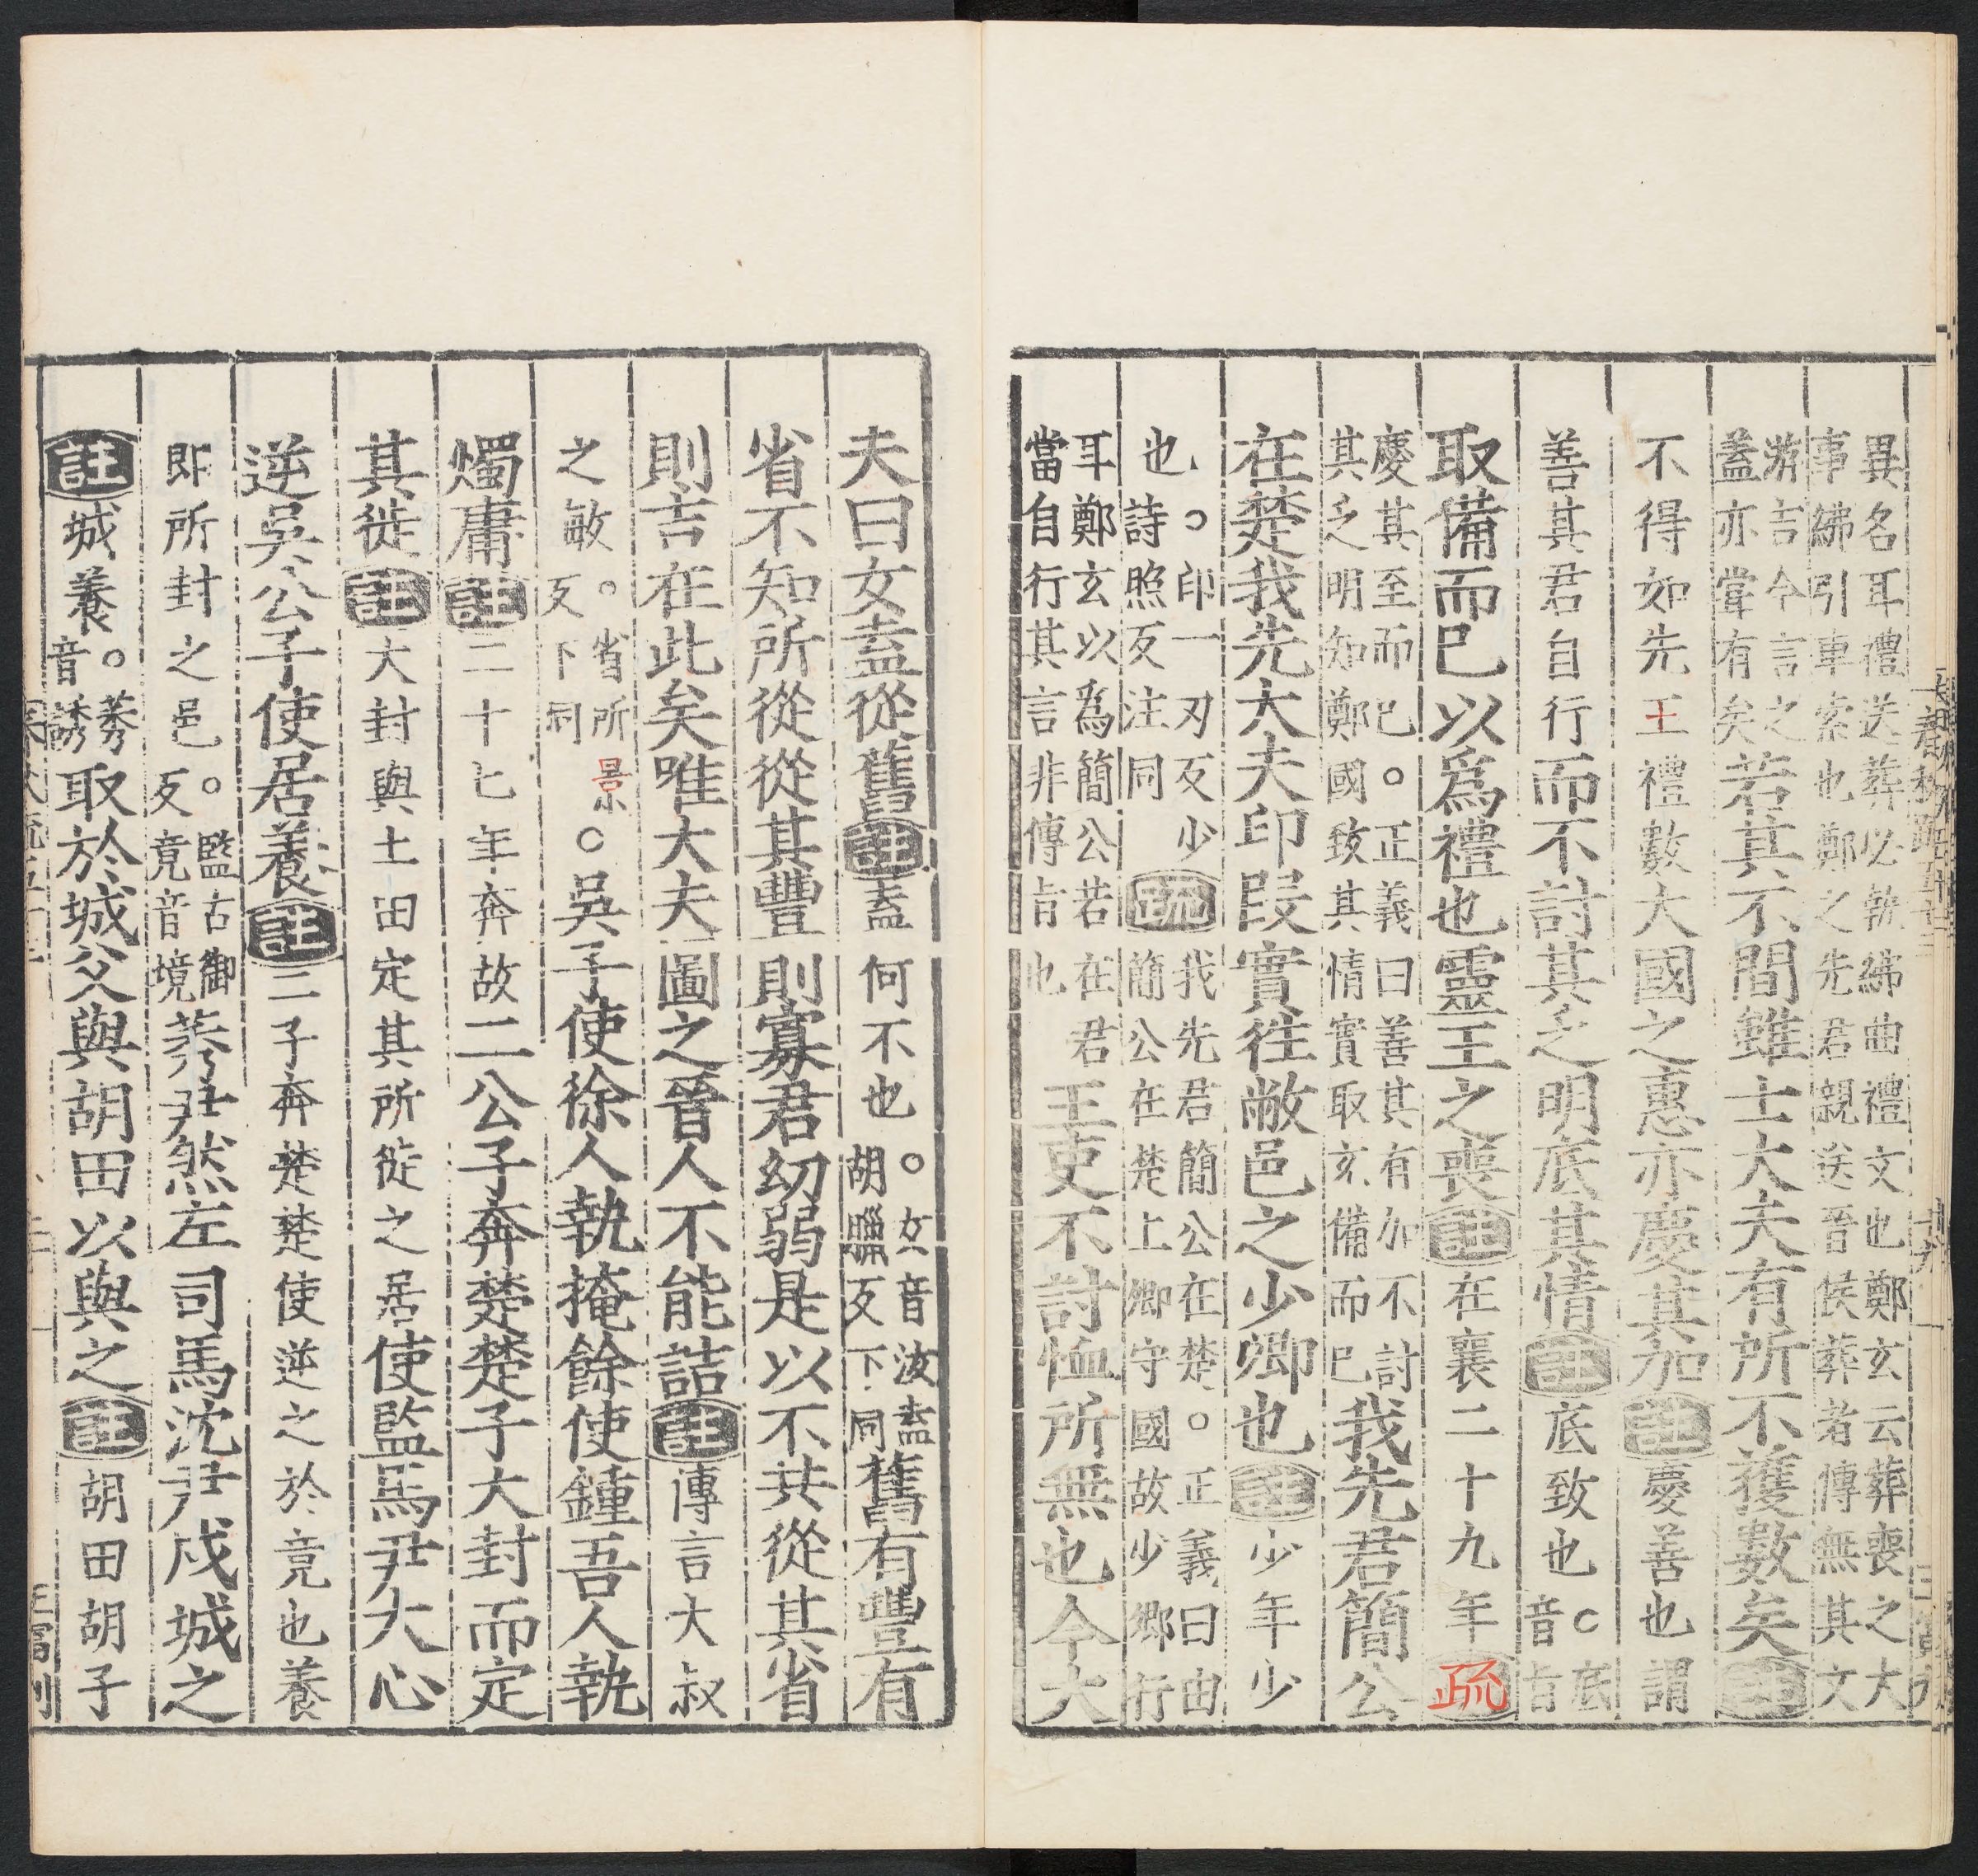 異名耳禮送葬必執紼曲禮文也鄭玄云葬喪之大
事紼引車索也鄭之先君親送晉侯葬者傳無其文
游吉今言之
蓋亦嘗有矣若其不間雖士大夫有所不獲數矣註
不得如先王禮數大國之惠亦慶其加註慶善也謂
善其君自行而不討其乏明底其情註底致也○底
音旨
取備而已以為禮也靈王之喪註在襄二十九年疏
慶其至而已○正義曰善其有加不討
其乏明知鄭國致其情實取充備而已我先君簡公
在楚我先大夫印段實往敝邑之少卿也註少年少
也○印一刃反少
詩照反注同疏我先君簡公在楚○正義曰由
簡公在楚上卿守國故少鄉行
耳鄭玄以為簡公若在君
當自行其言非傳旨也王吏不討恤所無也今大
夫曰女盍從舊註盍何不也○女音汝盍
胡臘反下同舊有豐有
省不知所從從其豐則寡君幼弱是以不共從其省
則吉在此矣唯大夫圖之晉人不能詰註傳言大叔
之敏○省所景
反下同○吳子使徐人執掩餘使鍾吾人執
燭庸註二十七年奔故二公子奔楚楚子大封而定
其徙註大封與土田定其所徙之居使監馬尹大心
逆吳公子使居養註二子奔楚楚使逆之於竟也養
即所封之邑○監古銜
反竟音境莠尹然左司馬沈尹戌城之
註城養○莠
音誘取於城父與胡田以與之註胡田胡子